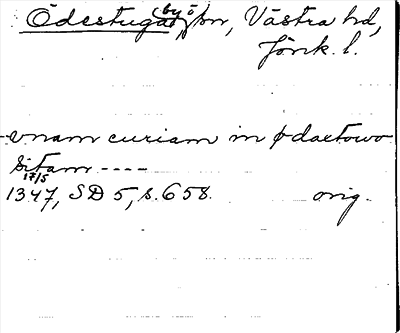 Ödestuga (by o) sn, Västra hd,
Jönk. l.
unam curiam in ødzstowo
sitam ----
17/5
1347, SD 5, s. 658. orig.